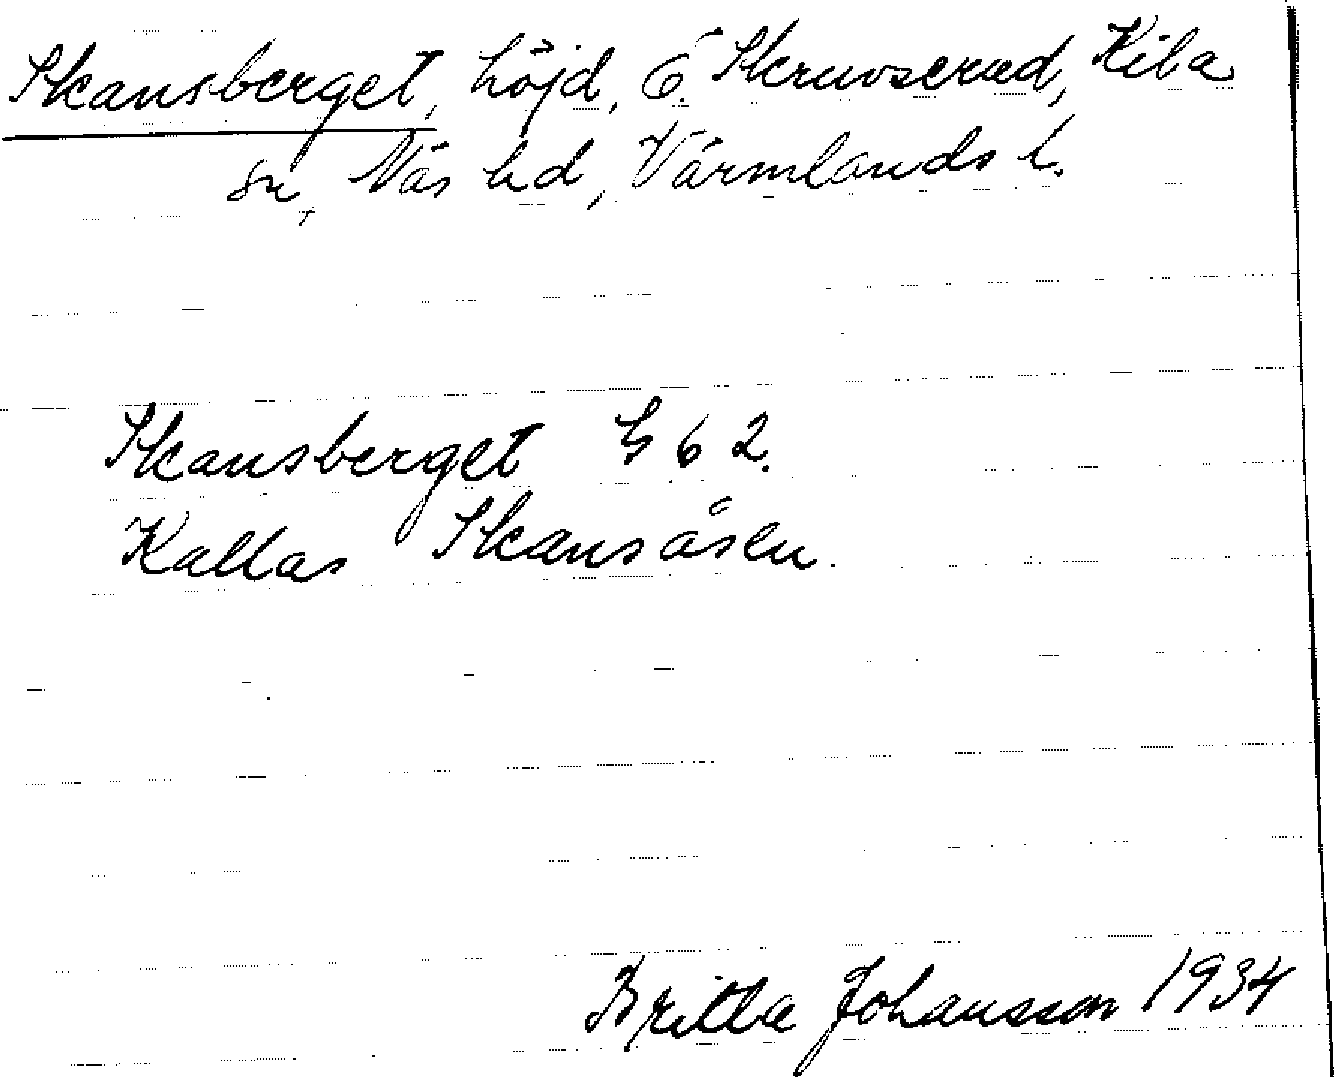 Skansberget, höjd, Ö. Skruvserud, Kila
sn, Näs hd, Värmlands l.
Skansberget G 6 2.
Kallas Skansåsen.
Britta Johansson 1934